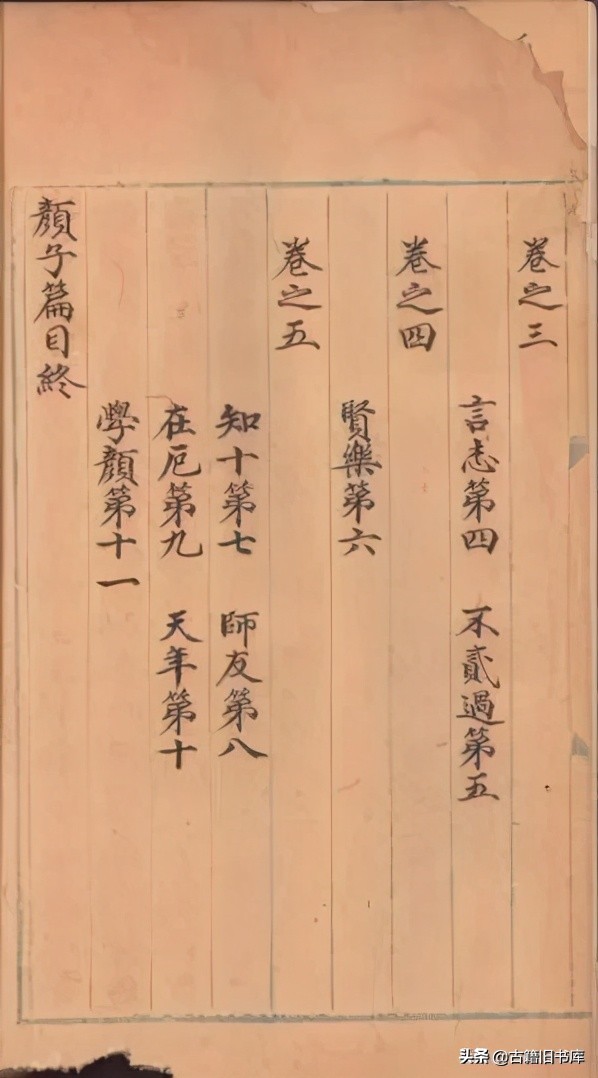 卷之三
言志第四　不貳過第五
卷之四
賢樂第六
卷之五
知十第七　師友第八
在厄第九　天年第十
學顏第十一
顏子篇目終
头条 @古籍旧书库